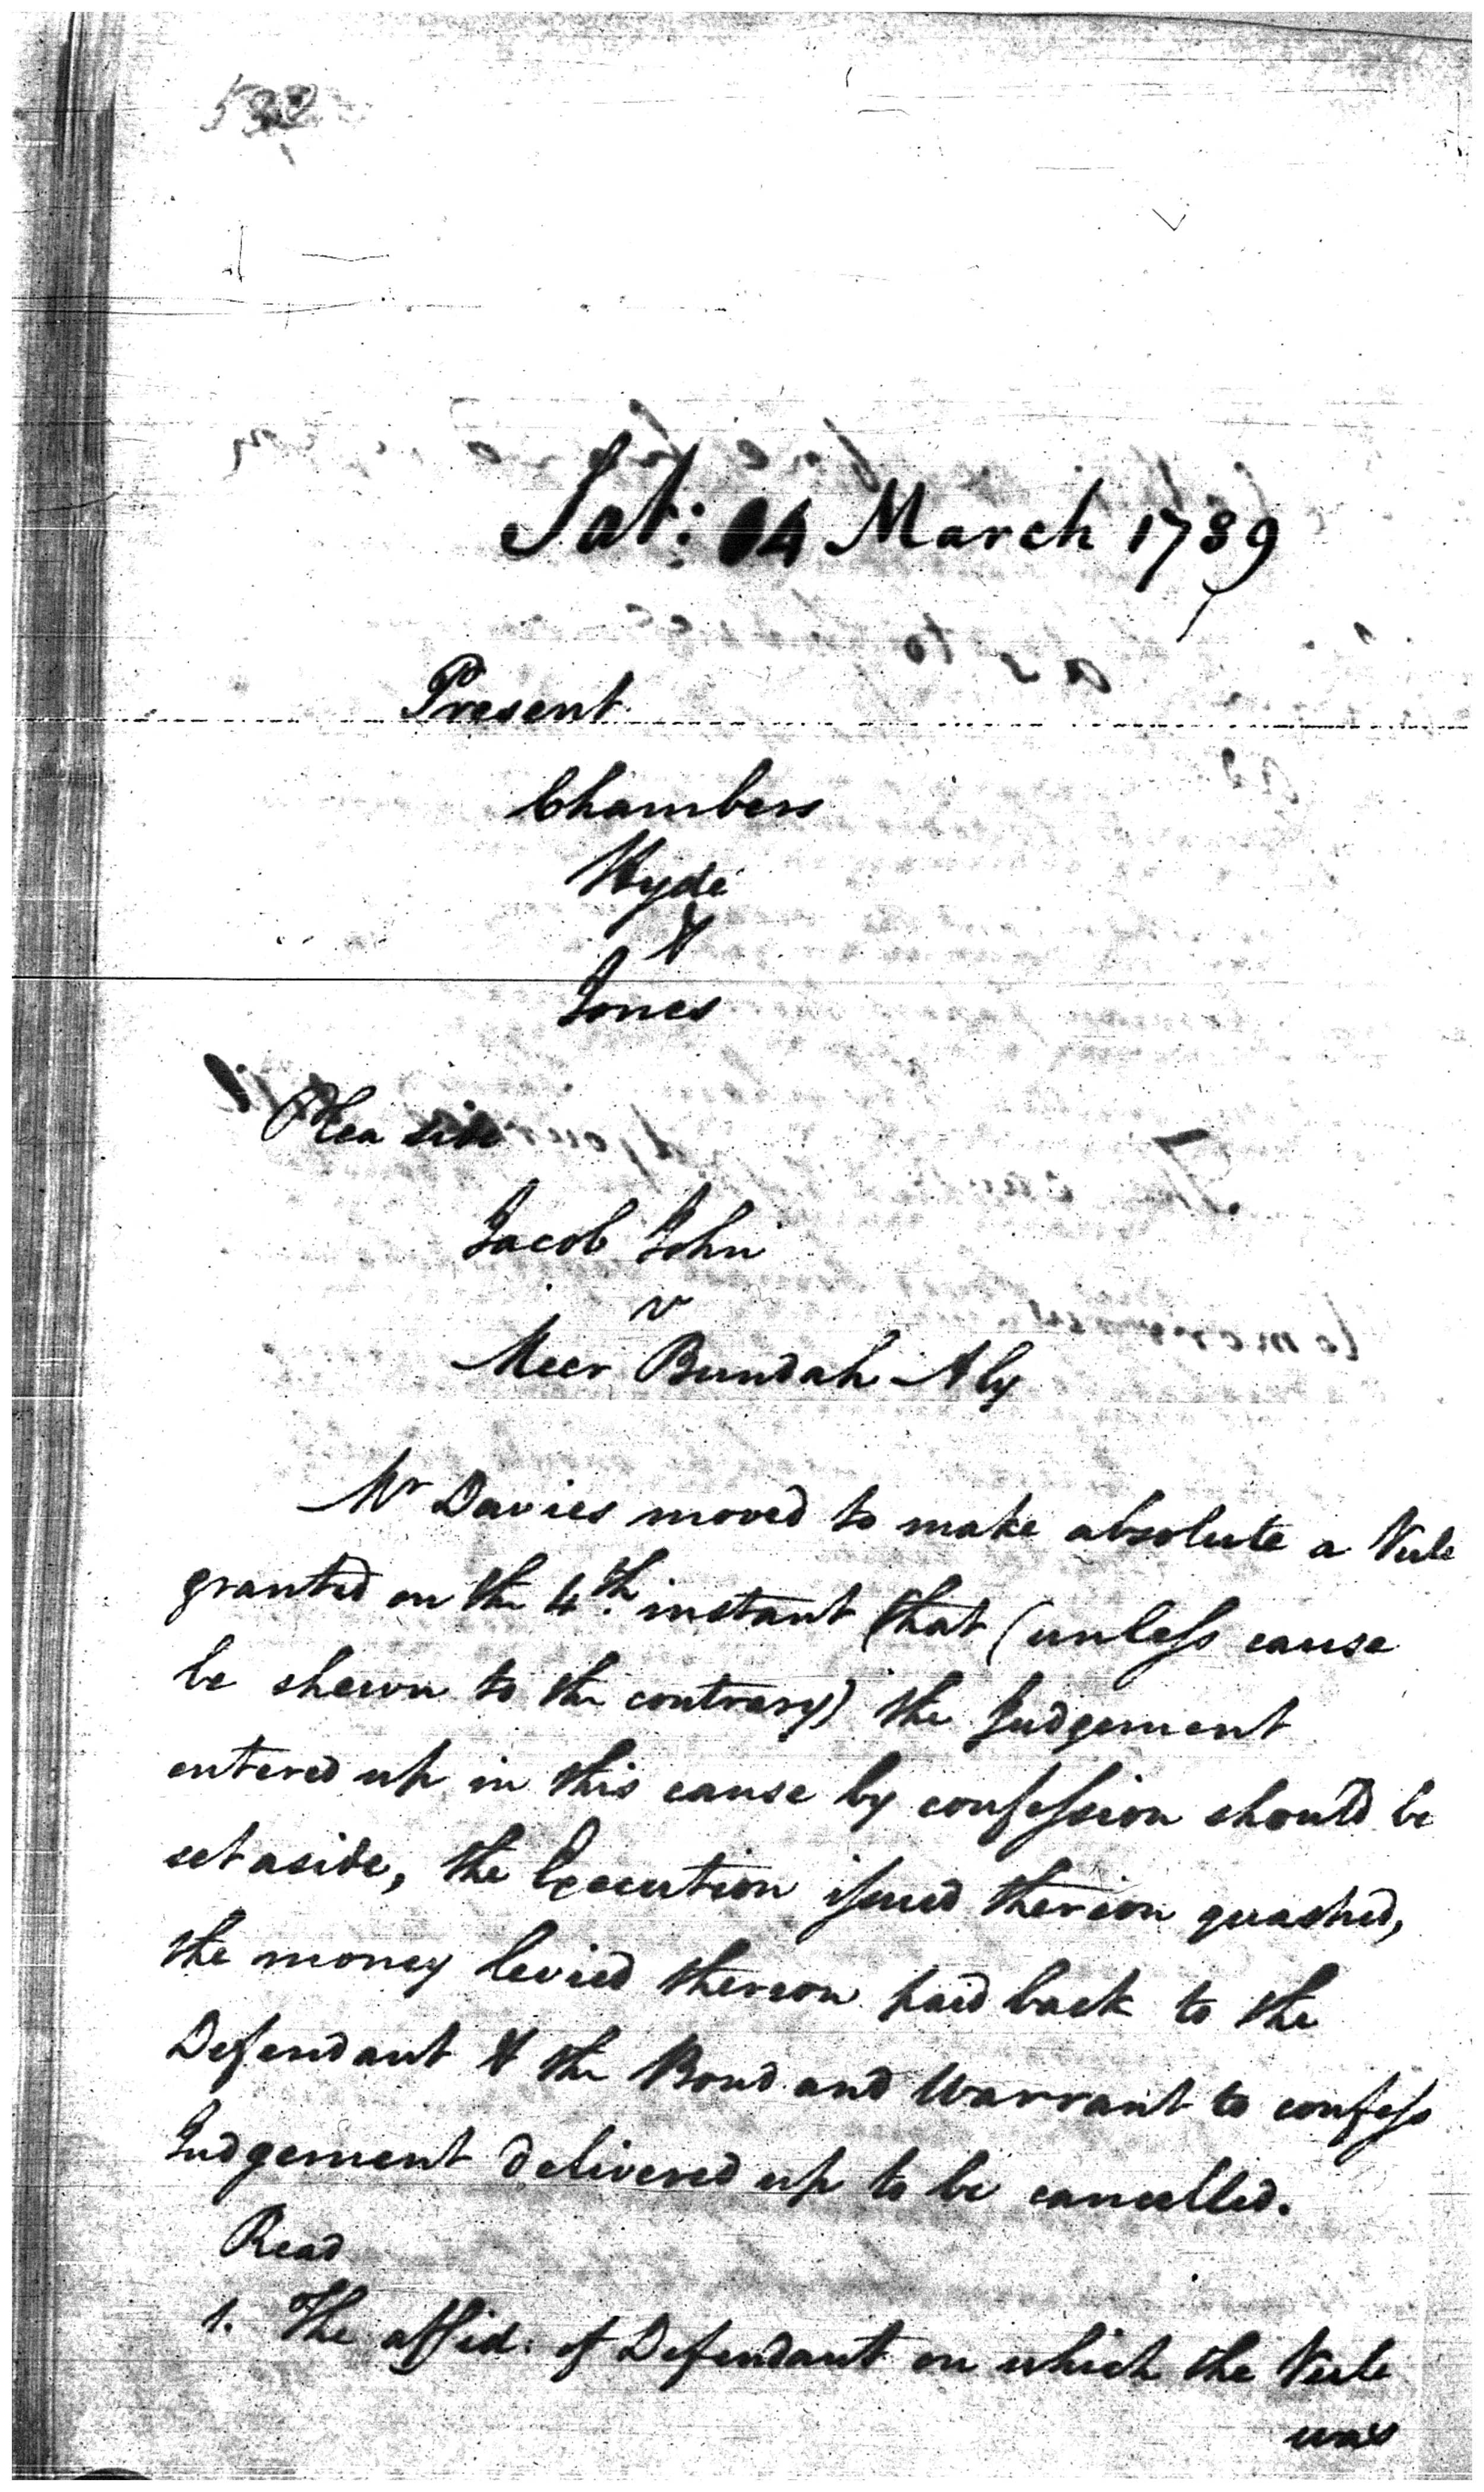 Sat: 14 March 1789
Present
Chambers
Hyde
&
Jones
Plea side
Jacob John
v
Meer Bundah Aly
Mr Davies moved to make absolute a Rule
granted on the 4th. instant that (unless cause
be shewn to the contrary) the Judgement
entered up in this cause by confession should be
set aside, the Execution issued thereon quashed,
the money levied thereon paid back to the
Defendant & the Bond and Warrant to confess
Judgement delivered up to be cancelled.
Read
1. The affid: of Defendant on which the Rule
was